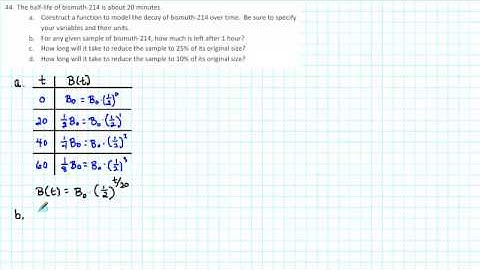 44. The half-life of bismuth-214 is about 20 minutes.
a. Construct a function to model the decay of bismuth-214 over time. Be sure to specify
your variables and their units.
b. For any given sample of bismuth-214, how much is left after 1 hour?
c. How long will it take to reduce the sample to 25% of its original size?
d. How long will it take to reduce the sample to 10% of its original size?
a. t B(t)
0 B₀ = B₀·(1/2)⁰
20 1/2 B₀ = B₀·(1/2)¹
40 1/4 B₀ = B₀·(1/2)²
60 1/8 B₀ = B₀·(1/2)³
B(t) = B₀·(1/2)^(t/20)
b.